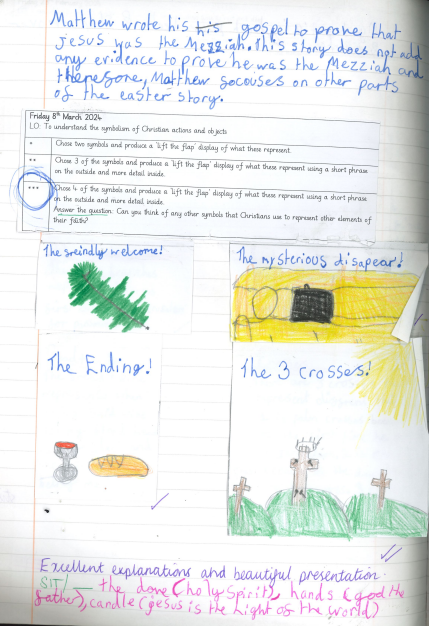 Matthew wrote his his gospel to prove that
jesus was the Mezziah. This story does not add
any evidence to prove he was the Mezziah and
theresore, Matthew socouses on other parts
of the easter story.
Friday 8th March 2024
LO: To understand the symbolism of Christian actions and objects
* Chose two symbols and produce a 'lift the flap' display of what these represent.
** Chose 3 of the symbols and produce a 'lift the flap' display of what these represent using a short phrase
on the outside and more detail inside.
*** Chose 4 of the symbols and produce a 'lift the flap' display of what these represent using a short phrase
on the outside and more detail inside.
Answer the question: Can you think of any other symbols that Christians use to represent other elements of
their faith?
The sreindly welcome!
The mysterious disapear!
The Ending!
The 3 crosses!
Excellent explanations and beautiful presentation.
SIT/ the dove (holy Spirit), hands (god the
father), candle (jesus is the light of the world)